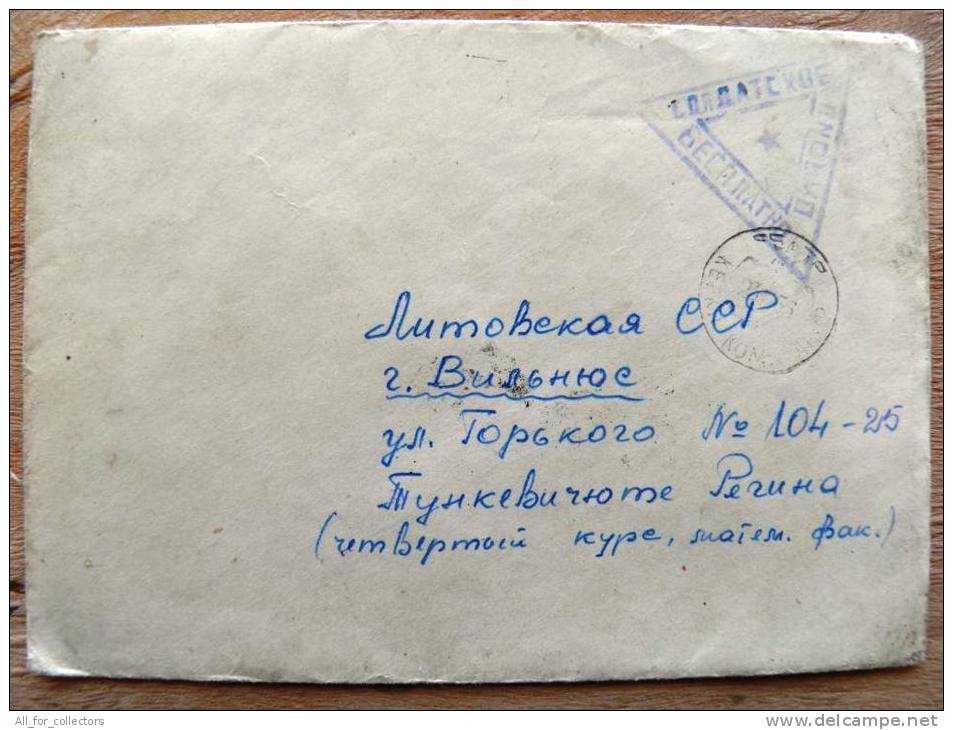 СОЛДАТСКОЕ
ПИСЬМО
БЕСПЛАТНО
Литовская ССР
г. Вильнюс
ул. Горького № 104-25
Тункевичюте Регина
(четвертый курс, матем. фак.)
All_for_collectors
www.delcampe.net